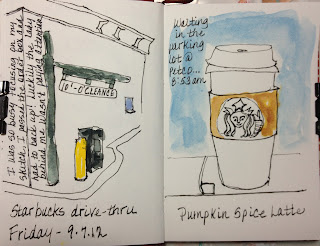 I was so busy focusing on my
sketch, I passed the order box and
had to back up! Luckily the lady
behind me wasn't paying attention
CLEANCE
Starbucks drive-thru
Friday - 9.7.12
Waiting
in the
parking
lot @
petco...
8:53am
Pumpkin Spice Latte